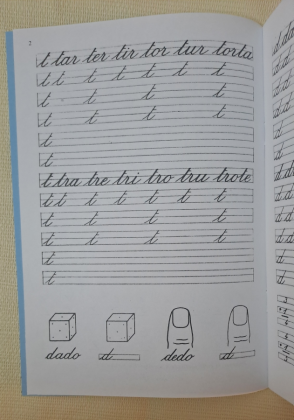 2
t tar ter tir tor tur torta
t t t t t t t t
t t t t
t t t t
t
t
t tra tre tri tro tru trole
t t t t t t t t
t t t t
t t t t
t
t
dado d dedo d